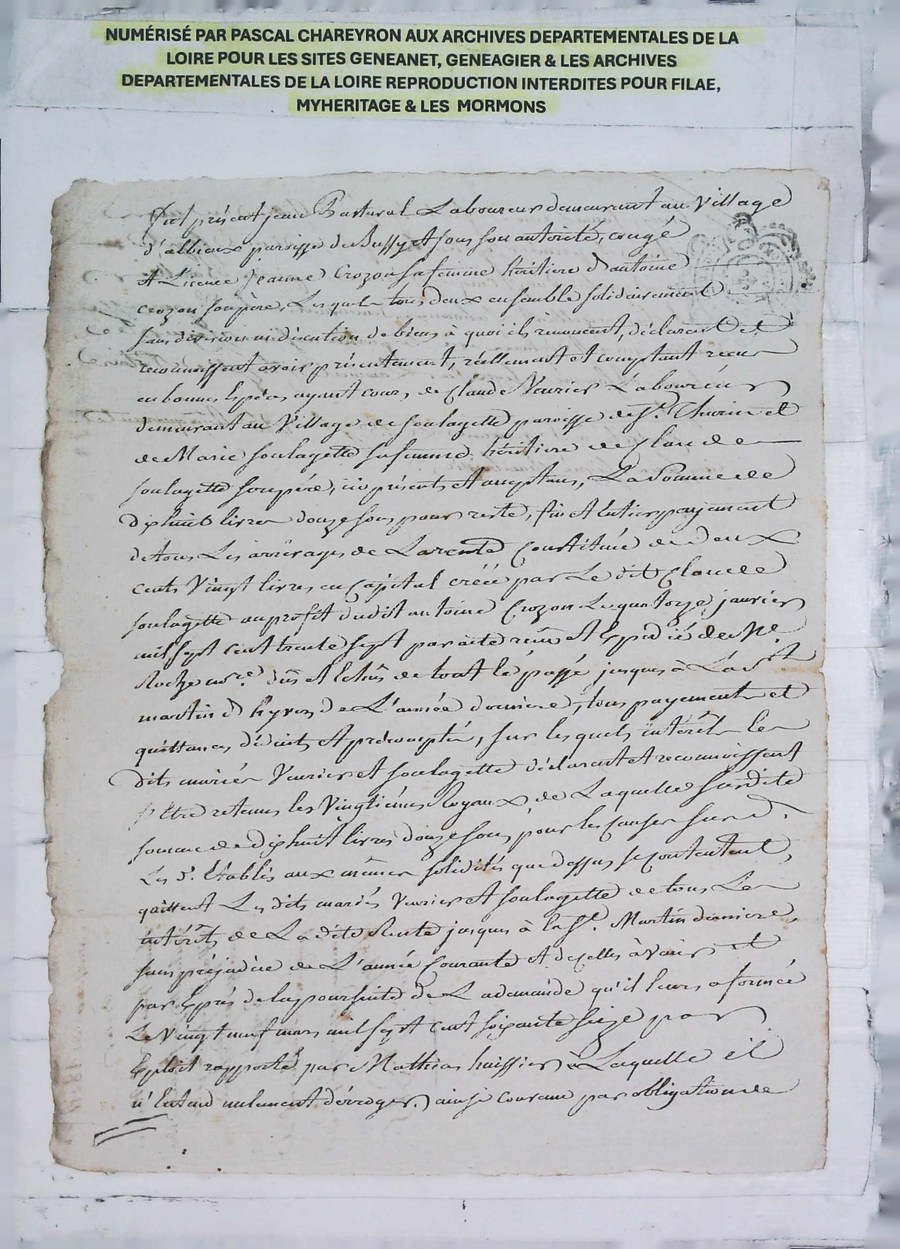 NUMÉRISÉ PAR PASCAL CHAREYRON AUX ARCHIVES DEPARTEMENTALES DE LA
LOIRE POUR LES SITES GENEANET, GENEAGIER & LES ARCHIVES
DEPARTEMENTALES DE LA LOIRE REPRODUCTION INTERDITES POUR FILAE,
MYHERITAGE & LES MORMONS
Fut présent jean Laboureur demeurant au Village
d'albieux paroisse de Bussy et sous son autorité, congé
et Licence Jeanne Crozon sa femme héritière d'antoine
crozon son père, Lesquels tous deux ensemble solidairement
sans division ni discution de biens à quoi ils renoncent, déclarent et
reconnoissent avoir présentement, réellement et comptant receu
en bonnes Espèces ayant cours, de Claude Vevrier Laboureur
demeurant au Village de soulagette paroisse de St. Thurin et
de Marie soulagette sa femme héritière de Claude
soulagette son père, ici présents et acceptans, La somme de
dixhuit livres douze sous pour reste, fin et Entier payement
de tous Les arrérages de La rente Constituée de deux
cents Vingt livres en Capital créée par Le dit Claude
soulagette au profit dudit antoine Crozon Le quatorze janvier
mil sept cent trente sept par acte reçu et Expédié de Me
Roche nore. dûs et Echûs de tout le passé jusques à La St
martin d'hyver de L'année dernière, tous payements et
quittances déduits et précomptés, sur lesquels intérêts les
dits mariés Vevrier et soulagette déclarent et reconnoissent
s'être retenus les Vingtièmes Royaux, de Laquelle susdite
somme de dixhuit livres douze sous, pour les causes susd.
Les s. établis aux mêmes solidités que dessus se contentent,
quittent Les dits mariés Vevrier et soulagette de tous Les
intérêts de La dite Rente jusques à la St. Martin dernière,
sans préjudice de L'année Courante et de celles à venir et
par Exprès de la poursuite de La demande qu'il leurs a formée
Le Vingt neuf mars mil sept cent soixante seize par
Exploit rapporté par Mathias huissier à Laquelle il
n'Entend nulement déroger, ainsi convenu par obligation de